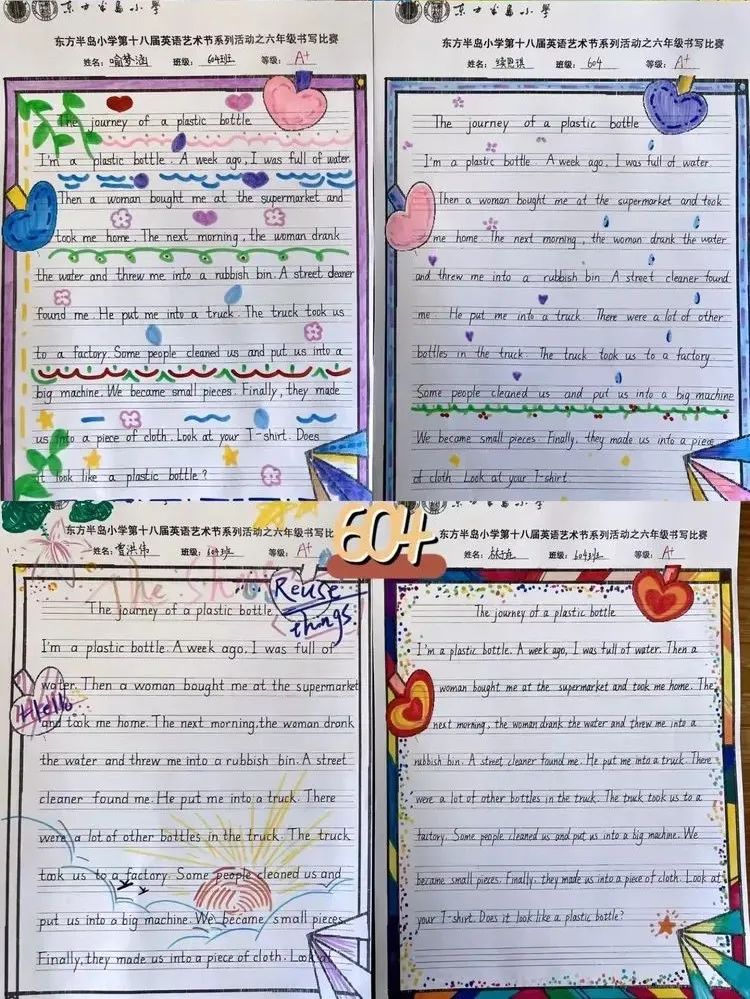 东方半岛小学
东方半岛小学第十八届英语艺术节系列活动之六年级书写比赛
姓名: 喻梦涵 班级: 604班 等级: A+
The journey of a plastic bottle
I'm a plastic bottle. A week ago, I was full of water.
Then a woman bought me at the supermarket and
took me home. The next morning, the woman drank
the water and threw me into a rubbish bin. A street cleaner
found me. He put me into a truck. The truck took us
to a factory. Some people cleaned us and put us into a
big machine. We became small pieces. Finally, they made
us into a piece of cloth. Look at your T-shirt. Does
it look like a plastic bottle?
东方半岛小学
东方半岛小学第十八届英语艺术节系列活动之六年级书写比赛
姓名: 班级: 604 等级: A+
The journey of a plastic bottle
I'm a plastic bottle. A week ago, I was full of water.
Then a woman bought me at the supermarket and took
me home. The next morning, the woman drank the water
and threw me into a rubbish bin. A street cleaner found
me. He put me into a truck. There were a lot of other
bottles in the truck. The truck took us to a factory.
Some people cleaned us and put us into a big machine
We became small pieces. Finally, they made us into a piece
of cloth. Look at your T-shirt.
604
东方半岛小学第十八届英语艺术节系列活动之六年级书写比
姓名: 班级: 604班 等级: A+
The
Reuse
things
The journey of a plastic bottle
I'm a plastic bottle. A week ago, I was full of
water. Then a woman bought me at the supermarket
Hello
and took me home. The next morning, the woman drank
the water and threw me into a rubbish bin. A street
cleaner found me. He put me into a truck. There
were a lot of other bottles in the truck. The truck
took us to a factory. Some people cleaned us and
put us into a big machine. We became small pieces.
Finally, they made us into a piece of cloth. Look at
东方半岛小学第十八届英语艺术节系列活动之六年级书写比赛
姓名: 班级: 604班 等级: A+
The journey of a plastic bottle
I'm a plastic bottle. A week ago, I was full of water. Then a
woman bought me at the supermarket and took me home. The
next morning, the woman drank the water and threw me into a
rubbish bin. A street cleaner found me. He put me into a truck. There
were a lot of other bottles in the truck. The truck took us to a
factory. Some people cleaned us and put us into a big machine. We
became small pieces. Finally, they made us into a piece of cloth. Look at
your T-shirt. Does it look like a plastic bottle?